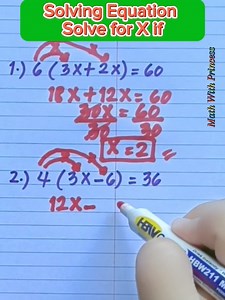 Solving Equation
Solve for X if
Math With Princess
1.) 6 (3x+2x) = 60
18x+12x = 60
30x = 60
30 30
x = 2
2.) 4 (3x-6) = 36
12x-
HBW211 M